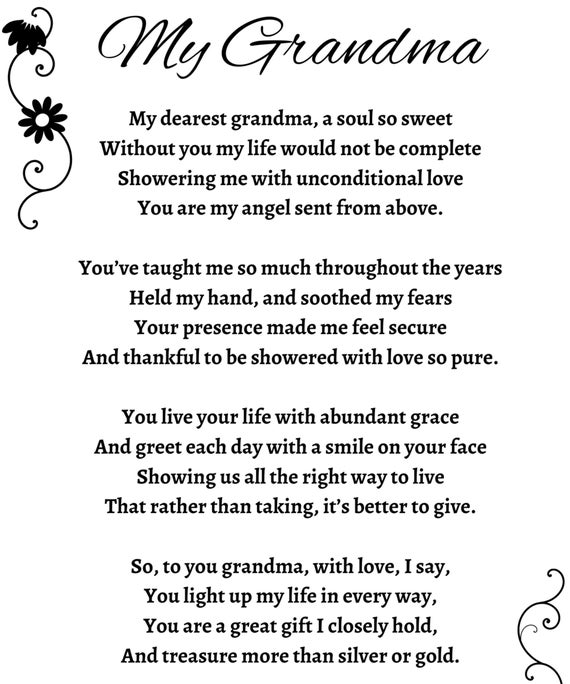 My Grandma
My dearest grandma, a soul so sweet
Without you my life would not be complete
Showering me with unconditional love
You are my angel sent from above.
You’ve taught me so much throughout the years
Held my hand, and soothed my fears
Your presence made me feel secure
And thankful to be showered with love so pure.
You live your life with abundant grace
And greet each day with a smile on your face
Showing us all the right way to live
That rather than taking, it’s better to give.
So, to you grandma, with love, I say,
You light up my life in every way,
You are a great gift I closely hold,
And treasure more than silver or gold.